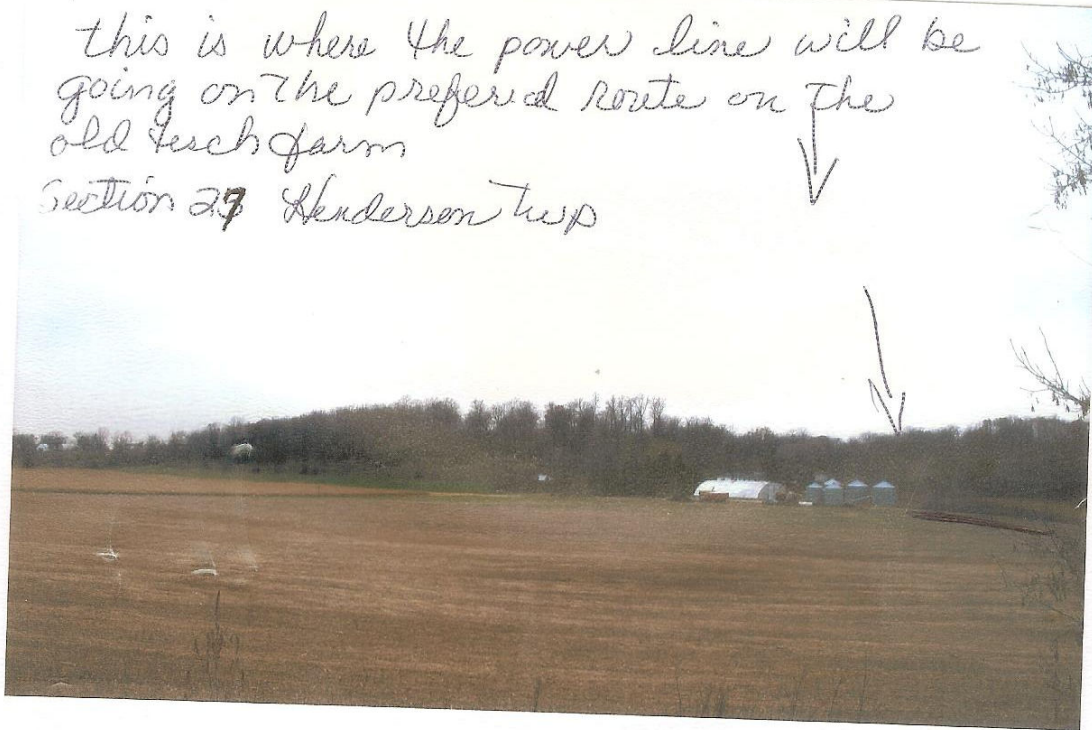 this is where the power line will be
going on the prefered route on the
old Tesch farm
Section 27 Henderson Twp